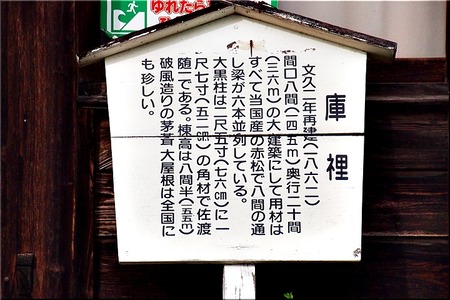 ゆれたら
庫裡
文久二年再建(一八六二)
間口八間(一四・五m)奥行二十間
(三六m)の大建築にして用材は
すべて当国産の赤松で八間の通
し梁が六本並列している。
大黒柱は二尺五寸(七六cm)に一
尺七寸(五二cm)の角材で佐渡
随一である。棟高は八間半(一五・五m)
破風造りの茅葺大屋根は全国に
も珍しい。